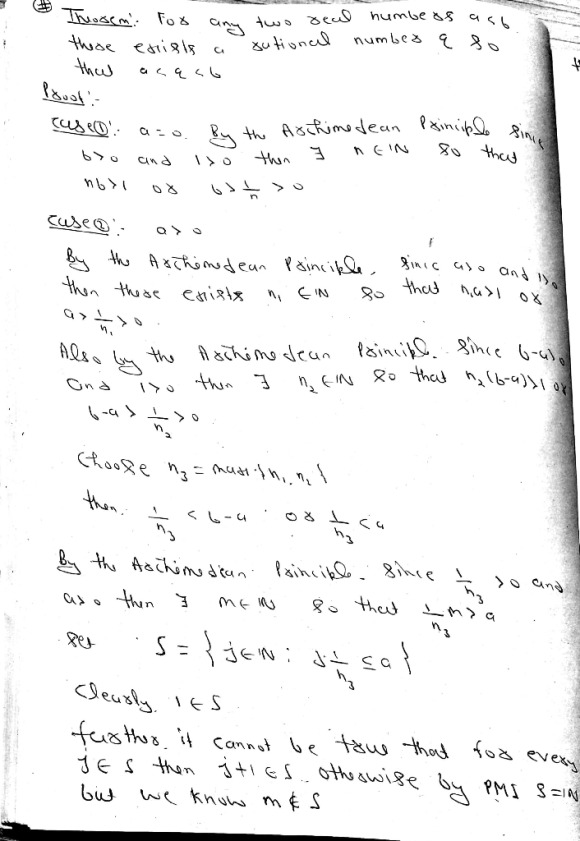 Theorem:- For any two real numbers a<b
there exists a rational number q so
that a<q<b
Proof:-
case①:- a=0. By the Archimedean Principle since
b>0 and 1>0 then ∃ n∈IN so that
nb>1 or b>1/n>0
case②:- a>0
By the Archimedean Principle, since a>0 and 1>0
then there exists n₁ ∈IN so that n₁a>1 or
a>1/n₁>0.
Also by the Archimedean Principle. Since b-a>0
and 1>0 then ∃ n₂∈IN so that n₂(b-a)>1 or
b-a>1/n₂>0
Choose n₃ = max{n₁,n₂}
then. 1/n₃ < b-a or 1/n₃ <a
By the Archimedean Principle. Since 1/n₃ >0 and
a>0 then ∃ m∈IN so that 1/n₃ m>a
set S = {j∈IN: j 1/n₃ ≤a}
Clearly, 1∈S
further, it cannot be true that for every
j∈S then j+1∈S. otherwise by PMI S=IN
but we know m∉S